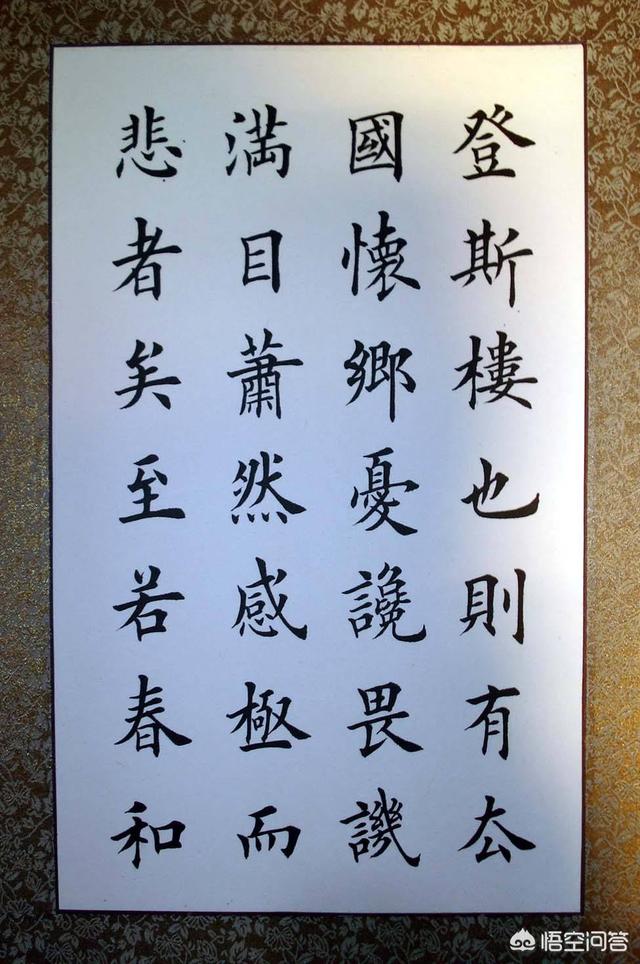 登斯樓也則有厺
國懷鄉憂讒畏譏
满目蕭然感極而
悲者矣至若春和
悟空问答